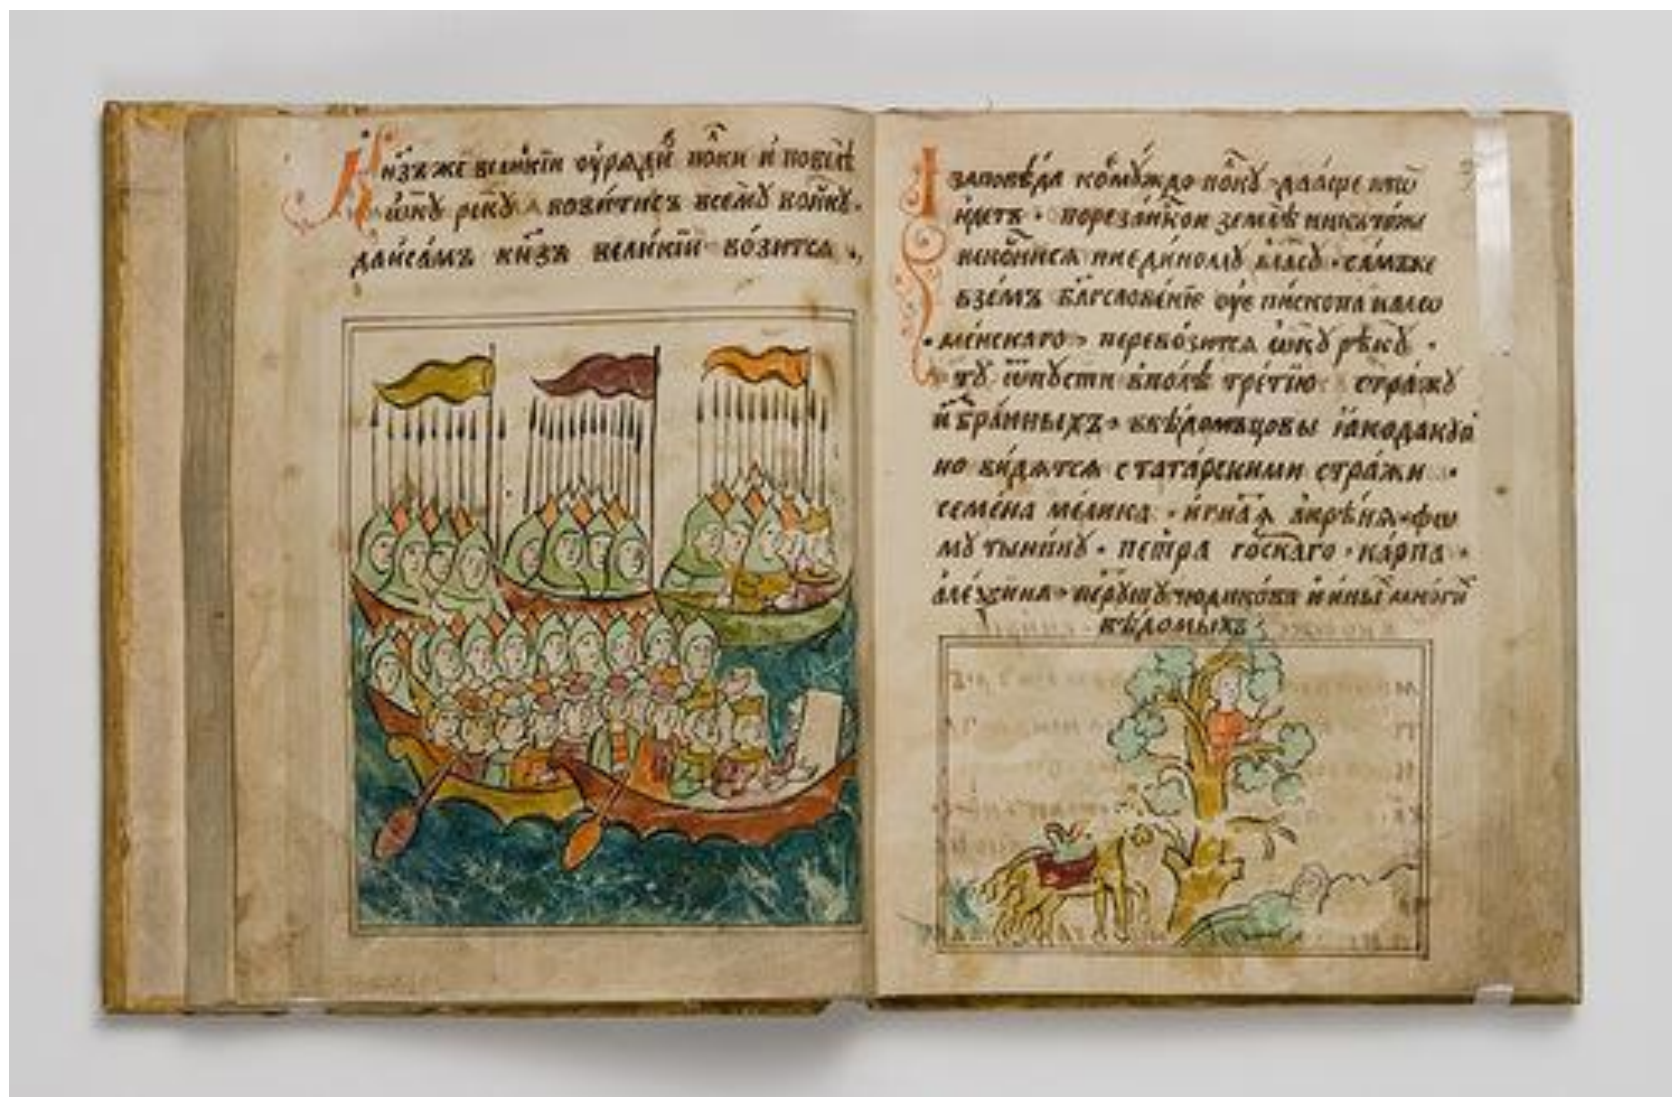 Кнзь же великїи ѹрѧди полки и повелѣ
ѡкꙋ рекꙋ возитисѧ всемꙋ войскꙋ.
да и са́мъ кнзь вели́кїи во́зитсѧ .,
И заповѣ́да комꙋждо полкꙋ да аще кто
и́детъ . по резанской землѣ никтоже
не косни́сѧ ни единомꙋ вла́сꙋ . са́мъ же
взе́мъ блгслове́нїе ѹ епи́скопа коло
ме́нскаго . перево́зитсѧ ѡкꙋ рѣкꙋ .
тꙋ ѿпꙋсти в поле тре́тїю стра́жꙋ
и҆збра́нныхъ . вѣдомцовы ꙗко да кꙋп
но ви́дѧтсѧ с тата́рскими стра́жи .
семе́на ме́лика . игна́тьѧ крѣнѧ . фо
мꙋ тыни́нꙋ . петра го́скаго . ка́рпа .
але́ѯина . петрꙋшꙋ чюрикова и ины́х мно́ги
вѣ́домыхъ